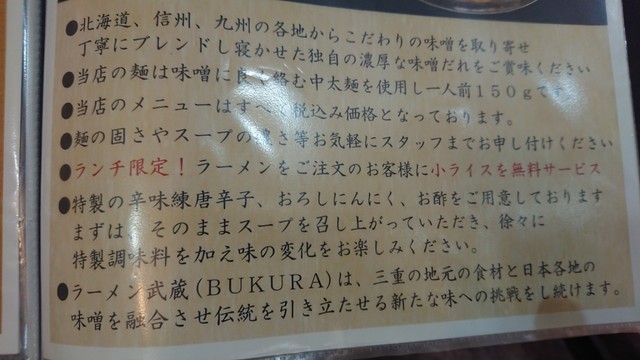 ●北海道、信州、九州の各地からこだわりの味噌を取り寄せ
丁寧にブレンドし寝かせた独自の濃厚な味噌だれをご賞味ください
●当店の麺は味噌に良く絡む中太麺を使用し一人前150gです
●当店のメニューはすべて税込み価格となっております。
●麺の固さやスープの濃さ等お気軽にスタッフまでお申し付けください
●ランチ限定！ラーメンをご注文のお客様に小ライスを無料サービス
●特製の辛味練唐辛子、おろしにんにく、お酢をご用意しております
まずは、そのままスープを召し上がっていただき、徐々に
特製調味料を加え味の変化をお楽しみください。
●ラーメン武蔵(BUKURA)は、三重の地元の食材と日本各地の
味噌を融合させ伝統を引き立たせる新たな味への挑戦をし続けます。